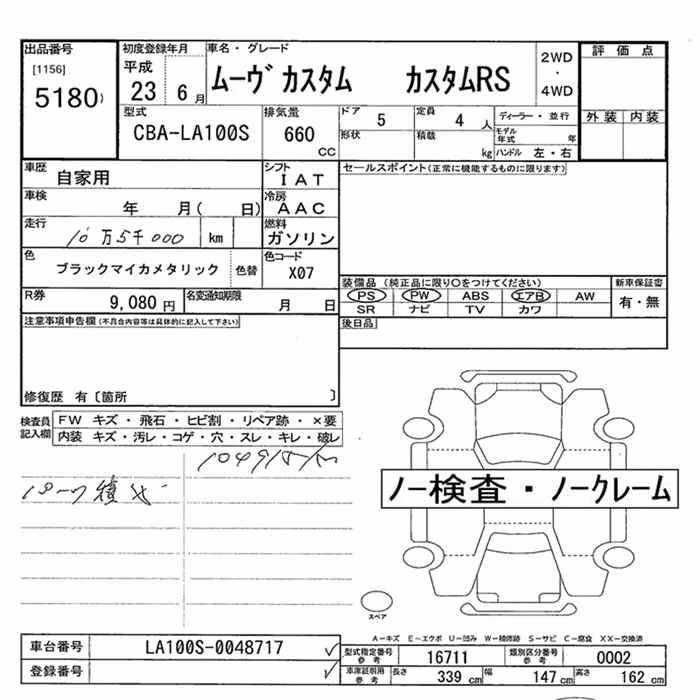 出品番号 初度登録年月 車名・グレード 2WD・4WD 評価点
[1156] 平成 ムーヴ カスタム カスタムRS
5180) 23 6月
型式 排気量 ドア 5 定員 4人 ディーラー・並行 外装 内装
CBA-LA100S 660 CC 形状 積載 kg モデル年式 年
ハンドル 左・右
車歴 自家用 シフト IAT セールスポイント(正常に機能するものに限ります)
車検 年 月( 日) 冷房 AAC
走行 10万5千000 km 燃料 ガソリン
色 ブラックマイカメタリック 色替 色コード X07
装備品 (純正品に限り○をつけてください) 新車保証書
PS PW ABS エアB AW 有・無
SR ナビ TV カワ
R券 9,080円 名変通知期限 月 日
後日品
注意事項申告欄(不具合内容等は具体的に記入して下さい)
修復歴 有〔箇所 〕
検査員記入欄 FW キズ・飛石・ヒビ割・リペア跡・×要
内装 キズ・汚レ・コゲ・穴・スレ・キレ・破レ
104915
ノー検査・ノークレーム
スペア
A-キズ E-エクボ U-凹み W-補修跡 S-サビ C-腐食 XX-交換済
車台番号 LA100S-0048717 ✓
登録番号 ✓
型式指定番号 参考 16711 類別区分番号 参考 0002
車庫証明用 参考 長さ 339cm 幅 147cm 高さ 162cm